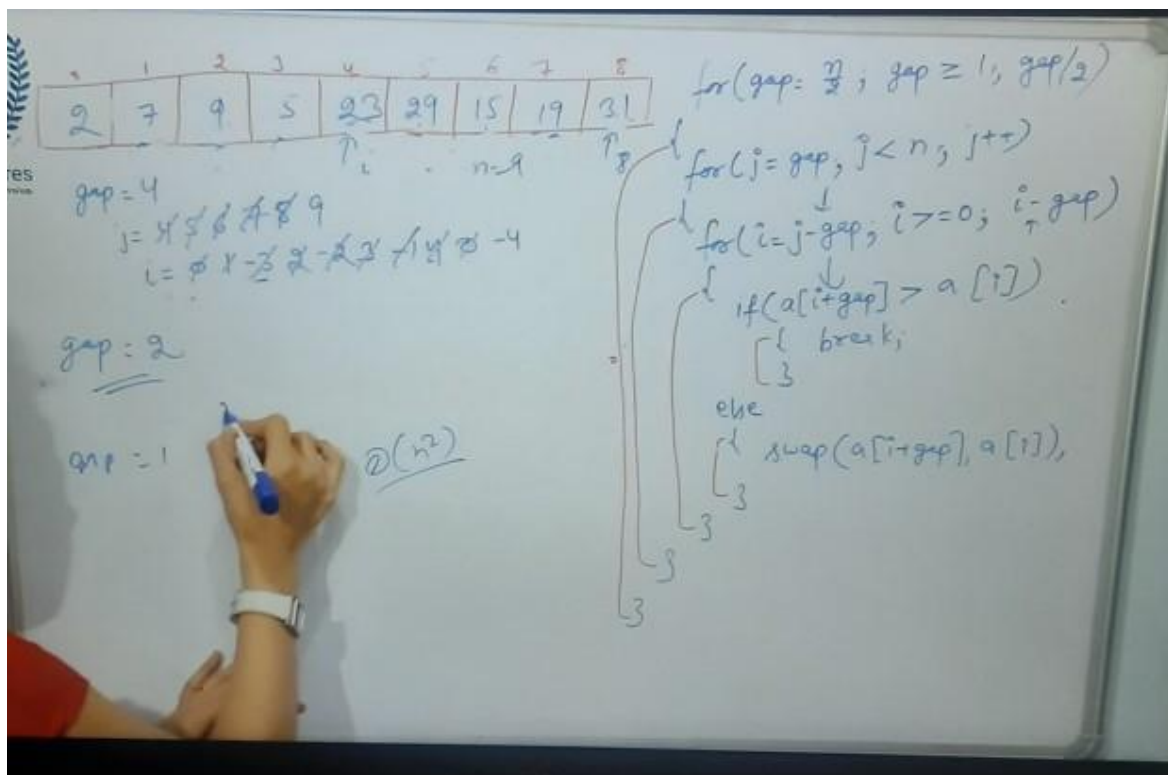 0 1 2 3 4 5 6 7 8
2 7 9 5 23 29 15 19 31
↑i n=9 ↑8
res
gap = 4
j= 4 5 6 7 8 9
i= 0 1 -3 2 -2 3 -1 4 0 -4
gap = 2
gap = 1
O(n²)
for(gap= n/2; gap ≥ 1; gap/2)
{
for(j= gap; j< n; j++)
{
for(i=j-gap; i>=0; i-gap)
{
if(a[i+gap] > a[i])
{ break;
}
else
{ swap(a[i+gap], a[i]);
}
}
}
}